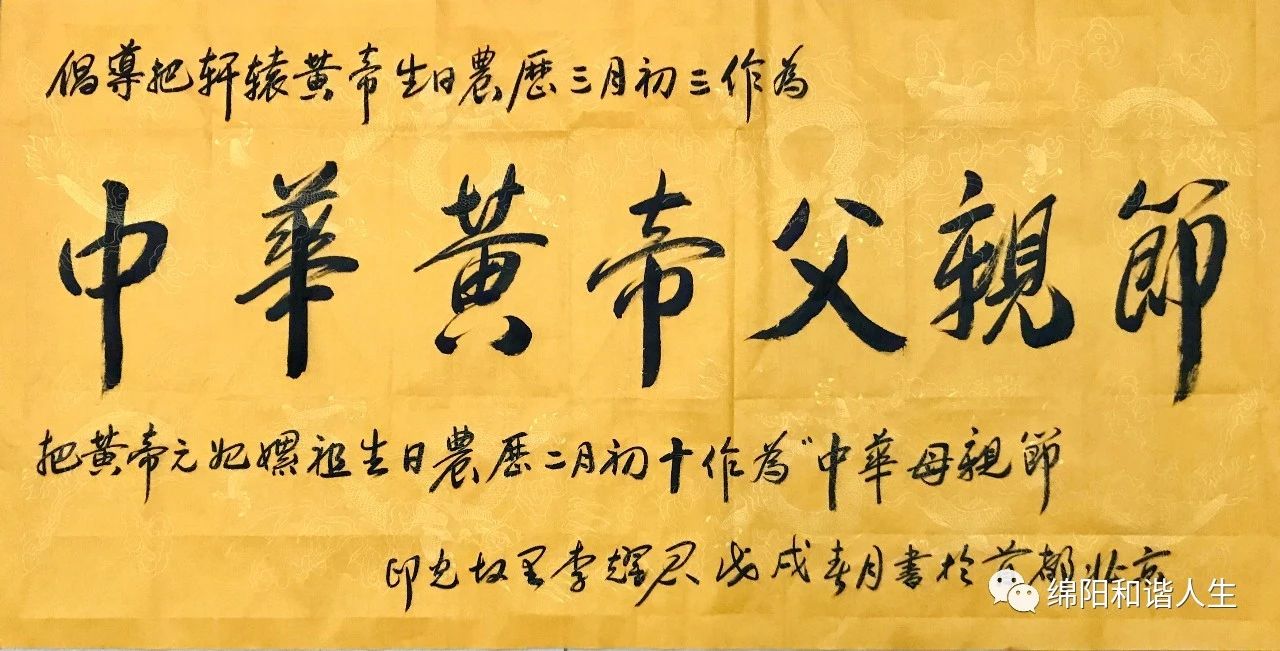 倡導把轩辕黄帝生日農歷三月初三作為
中華黄帝父親節
把黄帝元妃嫘祖生日農歷二月初十作為“中華母親節
印光故里李耀君戊戌春月書於首都北京
绵阳和谐人生